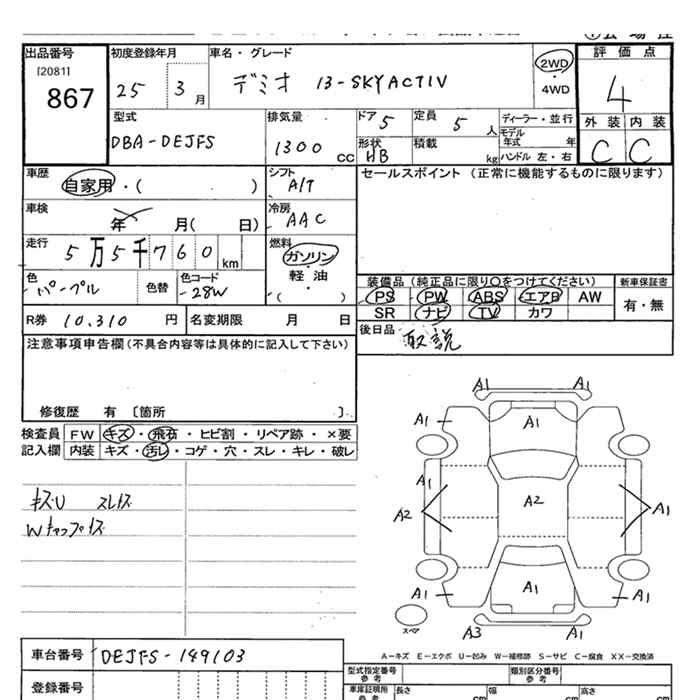 出品番号
[2081]
867
初度登録年月
25 3 月
車名・グレード
デミオ 13-SKYACTIV
2WD
・
4WD
評価点
4
外装 内装
C C
型式
DBA-DEJFS
排気量
1300 cc
ドア 5
定員 5 人
形状 HB
積載 kg
ディーラー・並行
モデル年式 年
ハンドル 左・右
車歴
自家用・( )
シフト
A/T
セールスポイント (正常に機能するものに限ります)
車検
年 月( 日)
冷房
AAC
走行
5万5千760 km
燃料
ガソリン
・
軽油
・
( )
色
パープル
色替
色コード
28W
装備品 (純正品に限り○をつけてください)
PS PW ABS エアB AW
SR ナビ TV カワ
新車保証書
有・無
R券 10,310 円
名変期限 月 日
後日品
取説
注意事項申告欄(不具合内容等は具体的に記入して下さい)
修復歴 有 〔箇所 〕
検査員 FW キズ・飛石・ヒビ割・リペア跡・×要
記入欄 内装 キズ・汚レ・コゲ・穴・スレ・キレ・破レ
キズU スレキズ
A1
A1 A1 A1
A1 A2 A1
A2
A1 A1 A1
A3 A1
スペア
A-キズ E-エクボ U-凹み W-補修跡 S-サビ C-腐食 XX-交換済
車台番号 DEJFS-149103
登録番号
型式指定番号
参考
類別区分番号
参考
車庫証明用
参考
長さ cm
幅 cm
高さ cm